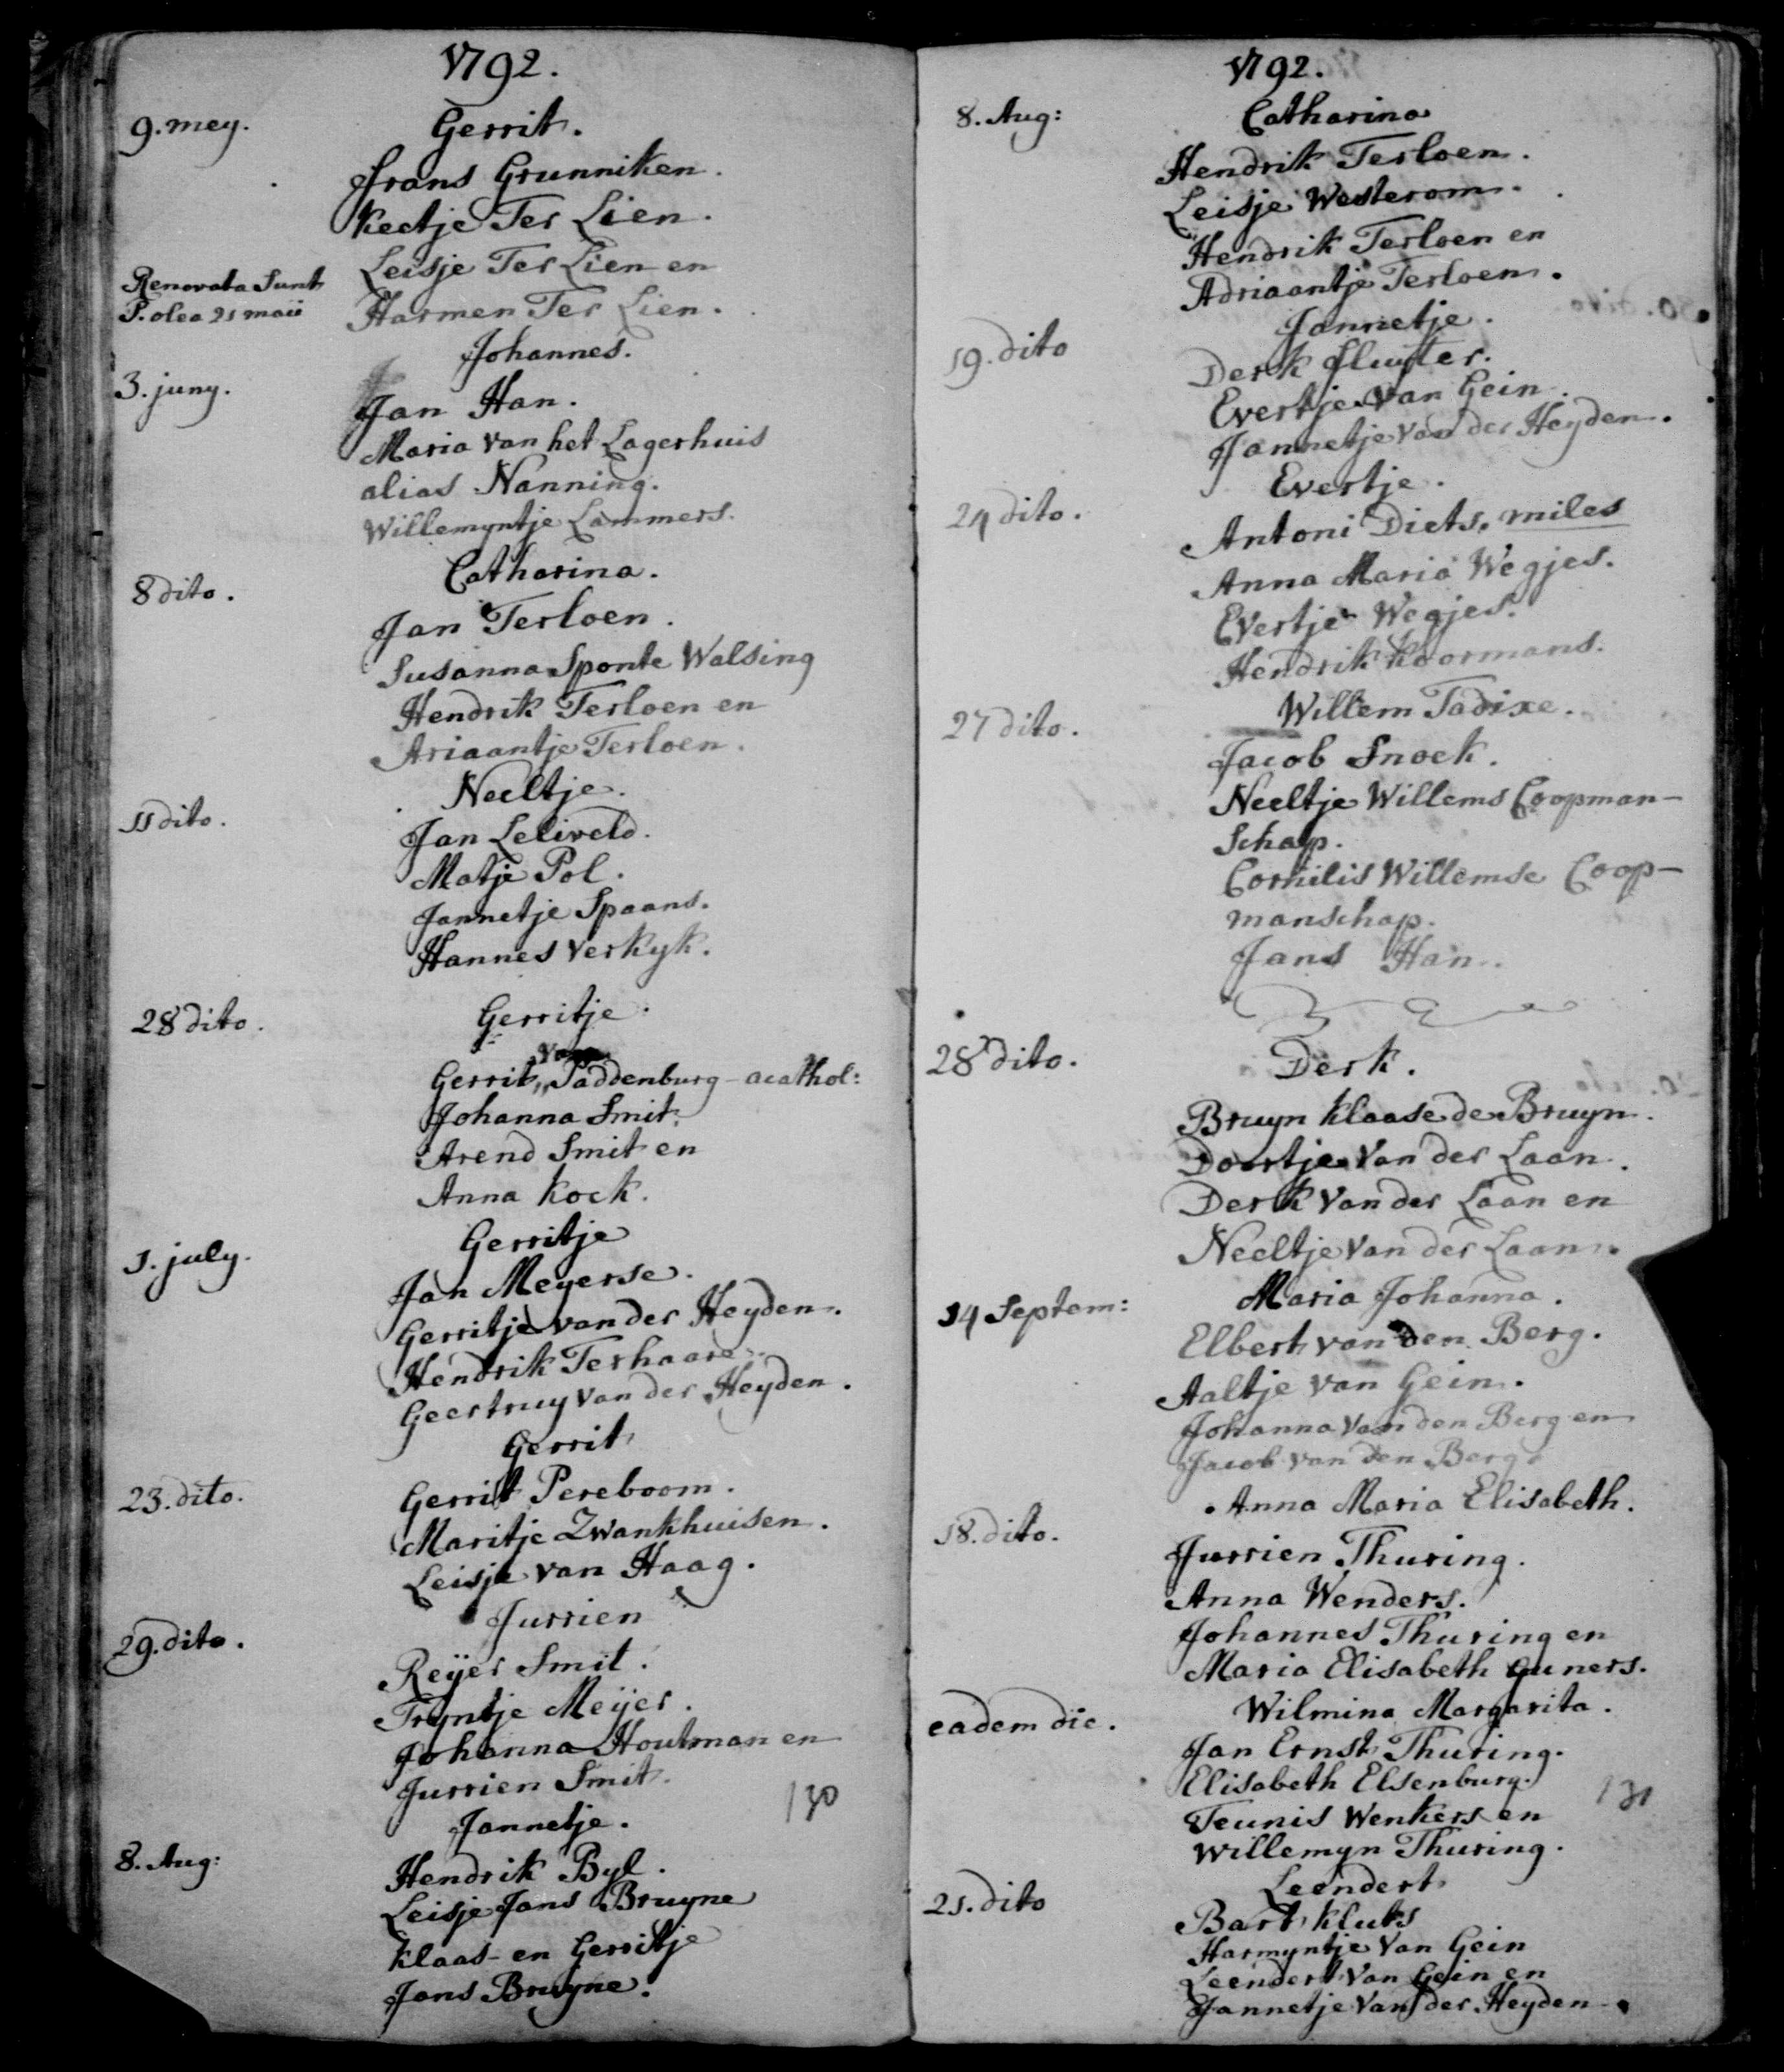 1792.
9. mey.
Gerrit.
Frans Grunniken.
Keetje Ter Lien.
Leisje Ter Lien en
Renovata Sunt
S. olea 21 maii
Harmen Ter Lien.
Johannes.
3. juny.
Jan Han.
Maria van het Lagerhuis
alias Nanning.
Willemyntje Lammers.
Catharina.
8 dito.
Jan Terloen.
Susanna Sponte Walsing
Hendrik Terloen en
Ariaantje Terloen.
Neeltje.
11 dito.
Jan Leliveld.
Matje Pol.
Jannetje Spaans.
Hannes Verkyk.
Gerritje.
28 dito.
van
Gerrit „ Paddenburg - acathol:
Johanna Smit.
Arend Smit en
Anna Kock.
Gerritje
1. july.
Jan Meyerse.
Gerritje van der Heyden.
Hendrik Terhaare.
Geertruy Van der Heyden.
Gerrit
23. dito.
Gerrit Pereboom.
Maritje Zwankhuisen.
Leisje van Haag.
Jurrien
29. dito.
Reijer Smit.
Tryntje Meijer.
Johanna Houtman en
Jurrien Smit.
130
Jannetje.
8. Aug:
Hendrik Byl.
Leisje Jans Bruyne
Klaas - en Gerritje
Jans Bruyne.
1792.
8. Aug:
Catharina
Hendrik Terloen.
Leisje Westerom.
Hendrik Terloen en
Adriaantje Terloen.
Jannetje.
19. dito
Derk Sluyter.
Evertje Van Gein.
Jannetje van der Heyden.
Evertje.
24 dito.
Antoni Diets. miles
Anna Maria Wegjes.
Evertje Wegjes.
Hendrik Koormans.
Willem Tadixe.
27 dito.
Jacob Snoek.
Neeltje Willems Coopman-
Schap.
Cornilis Willemse Coop-
manschap.
Jans Han.
28 dito.
Derk.
Bruyn Klaase de Bruyn.
Doortje Van der Laan.
Derk Van der Laan en
Neeltje Van der Laan.
Maria Johanna.
14 Septem:
Elbert van den Berg.
Aaltje van Gein.
Johanna Van den Berg en
Jacob van den Berg
Anna Maria Elisabeth.
18. dito.
Jurrien Thuring.
Anna Wenders.
Johannes Thuring en
Maria Elisabeth Guners.
Wilmina Margarita.
eadem die.
Jan Ernst Thuring.
Elisabeth Elsenburg.
131
Teunis Wenkers en
Willemyn Thuring.
Leendert
21. dito
Bart Kluts
Harmyntje Van Gein
Leendert Van Gein en
Jannetje Van der Heyden